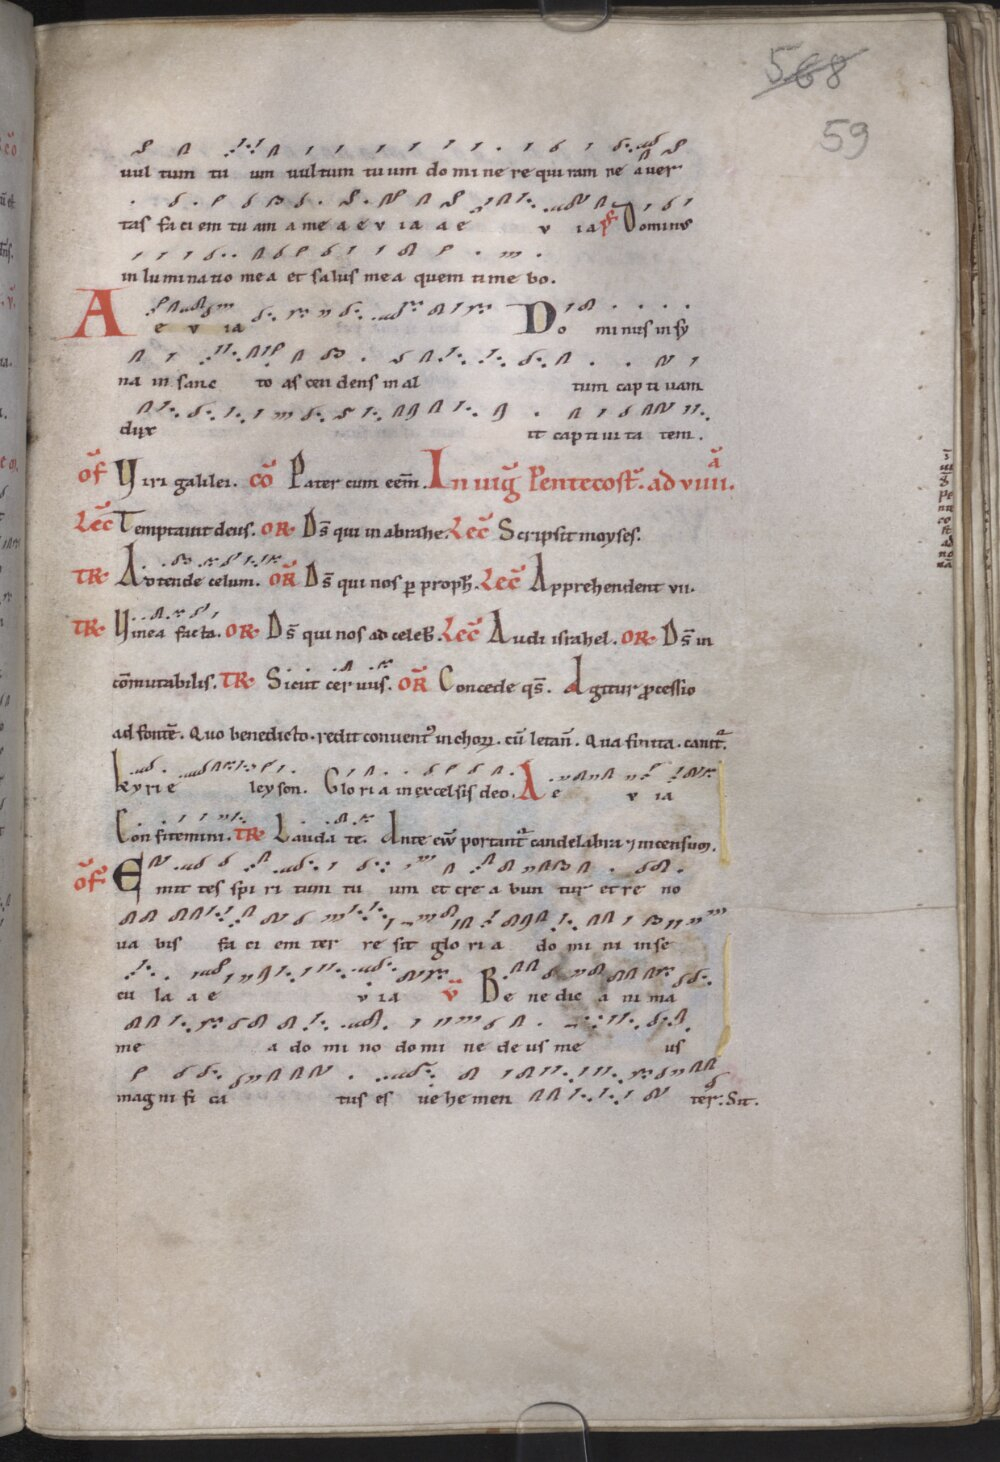 568
59
vul tum tu um vultum tuum do mi ne re qui ram ne aver
tas faci em tu am a me a e v ia a e v ia ps Dominus
in lumina tio me a et salus me a quem time bo.
A e v ia Do mi nus in sy
na in sanc to as cen dens in al tum cap ti vam
dux it cap ti vi ta tem.
of Viri galilei. co Pater cum eem̄. In vig̃ Pentecost̃. ad viiii. a
Lec̃ Temptavit deus. or Ds̄ qui in abrahe. Lec̃ Scripsit moyses.
TR Attende celum. OR Ds̄ qui nos p proph̃. Lec̃ Apprehendent vii.
TR Vinea facta. OR Ds̄ qui nos ad celeb̃. Lec̃ Audi israhel. OR Ds̄ in
cōmutabilis. TR Sicut cer vus. OR Concede qs̄. Agitur p̄cessio
ad fontē. Quo benedicto. redit convent᾽ in choꝝ. cū letañ. Qua finita. cantit᷑.
kyrie leyson. Glo ri a in excelsis deo. A e v ia
Con fitemini. TR Lauda te. Ante ew̄ portant᷑ candelabra ⁊ incensum.
of Emit tes spi ri tum tu um et cre a bun tur et re no
va bis fa ci em ter re sit glo ri a do mi ni in se
cu la a e v ia v̄ Be ne dic a ni ma
me a do mi no do mi ne de us me us
mag ni fi ca tus es ve he men ter. Sit.